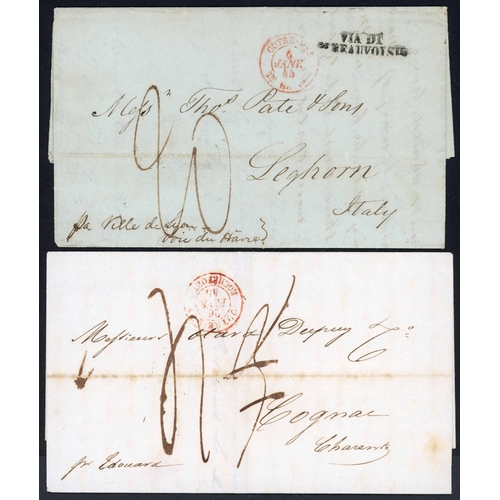 VIA DI
BEAUVOISIN
OUTRE-MER
6
JANV.
45
Messrs Thos. Pate & Sons,
Leghorn
Italy
pa Ville de Lyon
voie du Havre
20
Messieurs Otard Dupuy & Co
Cognac
Charente
pr Edouard